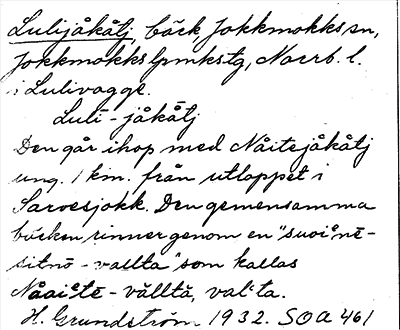 Lulijåkåtj, bäck Jokkmokks sn,
Jokkmokks lpmkstg, Norrb. l.
i Lulivagge.
Luli - jåkåtj
Den går ihop med Nåitejåkåtj
ung. 1 km. från utloppet i
Sarvesjokk. Den gemensamma
bäcken rinner genom en "suoi'nē-
sitnō - vallta" som kallas
Nåai'tē - vālltă, val'ta.
H. Grundström 1932. SOA 461